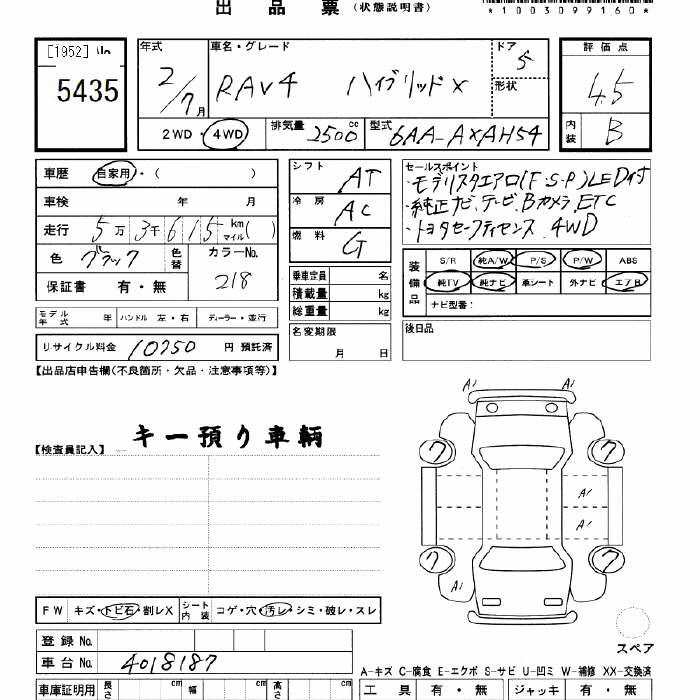 出品票 (状態説明書)
*1003099160*
[1952]
5435
年式 車名・グレード ドア 評価点
2/7月 RAV4 ハイブリッドX 5 4.5
形状
2WD・4WD 排気量 2500cc 型式 6AA-AXAH54 内装 B
車歴 自家用・( )
車検 年 月
走行 5万3千615km マイル( )
色 ブラック 色替 カラーNo. 218
保証書 有・無
シフト AT
冷房 AC
燃料 G
乗車定員 名
積載量 kg
総重量 kg
名変期限 月 日
セールスポイント
・モデリスタエアロ(F・S・P)LED付
・純正ナビ、テービ、Bカメラ、ETC
・トヨタセーフティセンス 4WD
装備品 S/R 純A/W P/S P/W ABS
純TV 純ナビ 革シート 外ナビ エアB
ナビ型番:
後日品
モデル年式 年 ハンドル 左・右 ディーラー・並行
リサイクル料金 10750 円 預託済
【出品店申告欄(不良箇所・欠品・注意事項等)】
キー預り車輌
【検査員記入】
A1 A1
7 7
A1
A1
7 7
A1
スペア
FW キズ・トビ石・割レX シート内装 コゲ・穴・汚レ・シミ・破レ・スレ
登録No.
車台No. 4018187
A-キズ C-腐食 E-エクボ S-サビ U-凹ミ W-補修 XX-交換済
車庫証明用 長さ cm 幅 cm 高さ cm 工具 有・無 ジャッキ 有・無